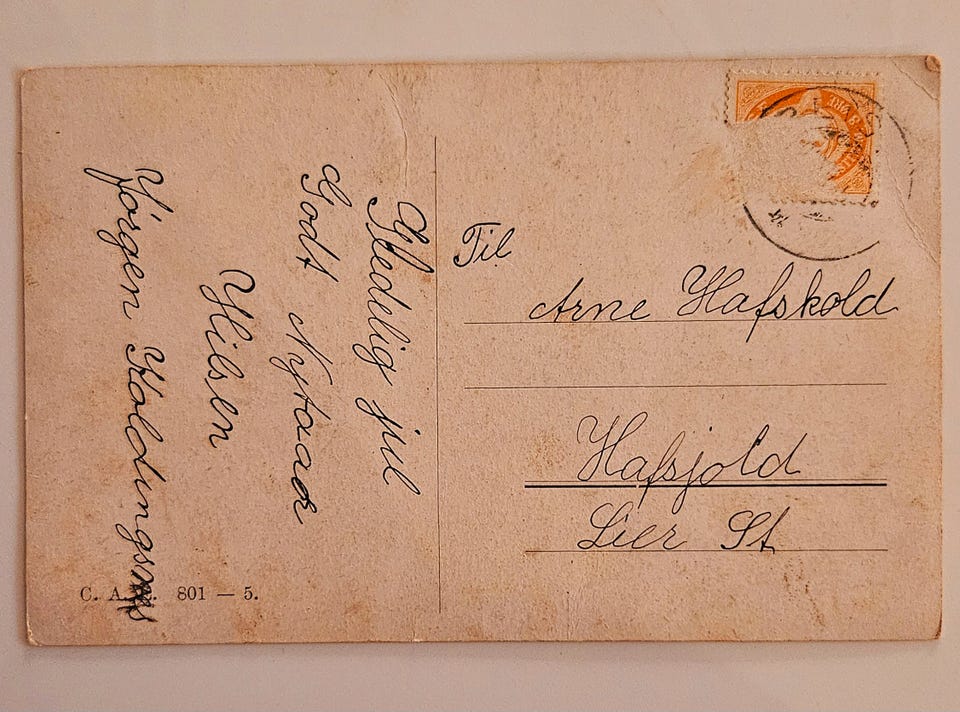 Gledelig jul
Godt Nytaar
Hilsen
Jørgen
Til
Arne Hafskold
Hafsjold
Lier St
C. A. 801 — 5.